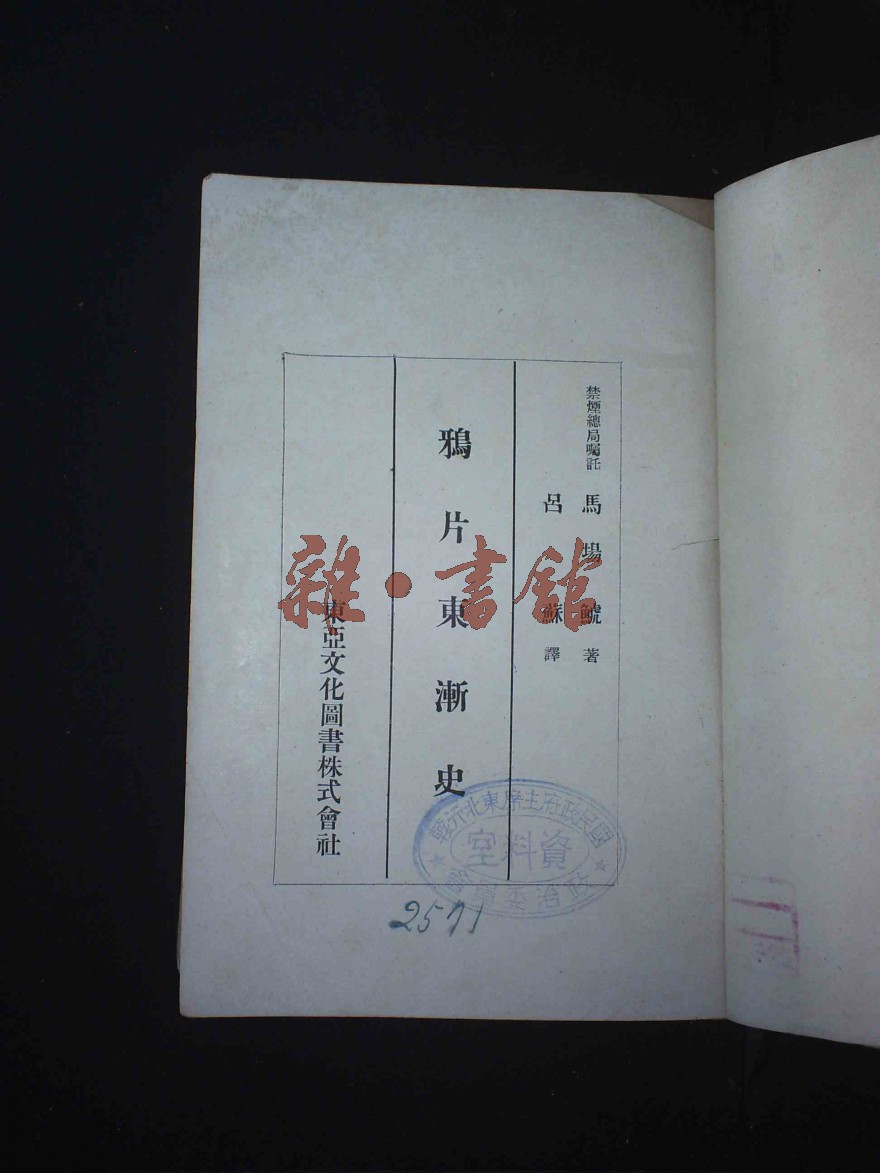 禁煙總局囑託 馬場鯱 著
呂蘇 譯
鴉片東漸史
東亞文化圖書株式會社
雜·書館
國民政府主席東北行轅
資料室
政治委員會
2571